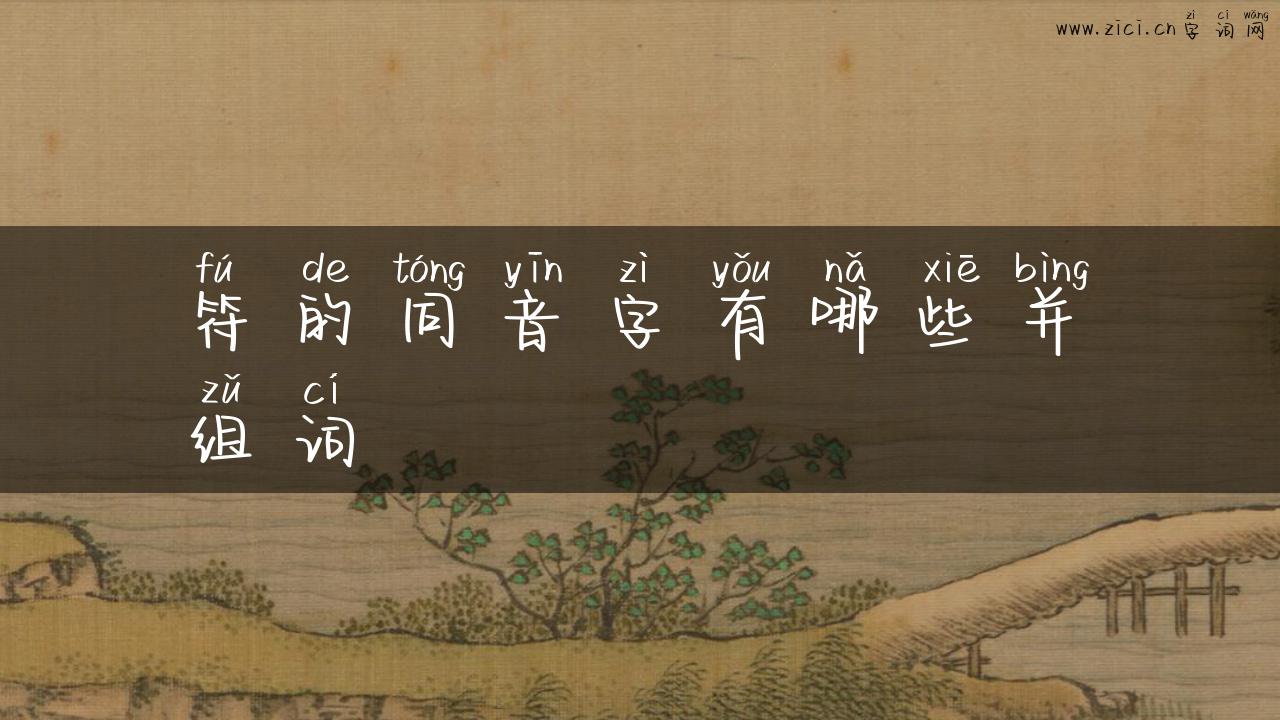 zì cí wǎng
www.zici.cn 字词网
fú de tóng yīn zì yǒu nǎ xiē bìng
符的同音字有哪些并
zǔ cí
组词